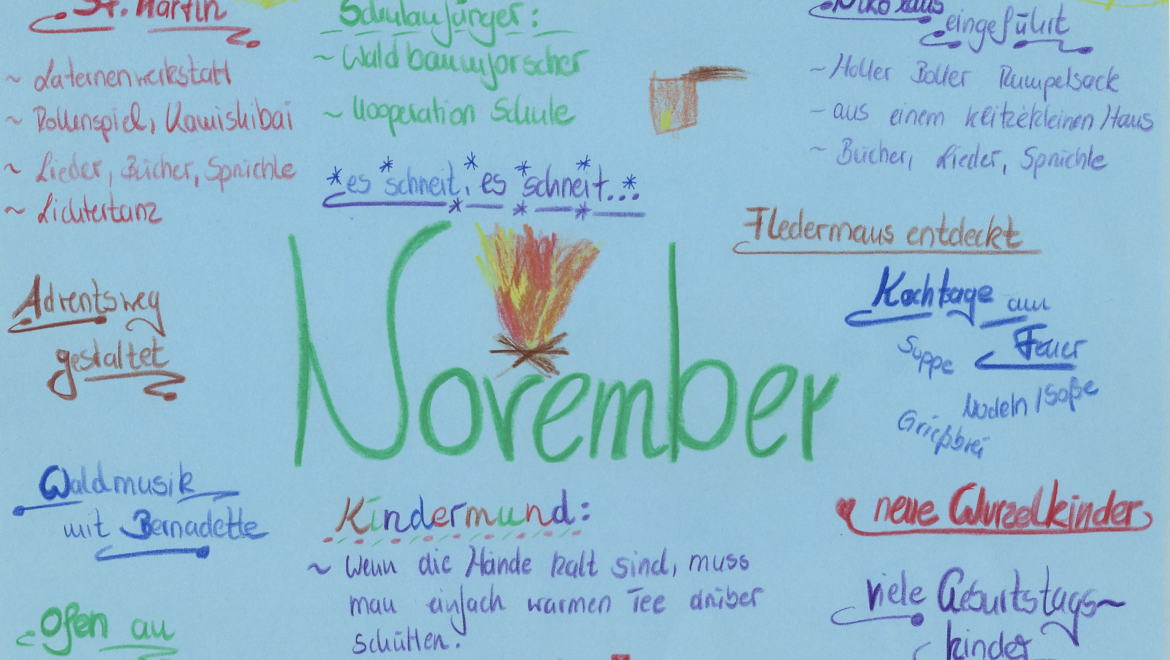 St. Martin
~ Laternenwerkstatt
~ Rollenspiel, Kamishibai
~ Lieder, Bücher, Sprüchle
~ Lichtertanz
Schulanfänger:
~ Waldbaumforscher
~ Kooperation Schule
*es schneit, es schneit...*
Nikolaus
eingeführt
~ Holler Boller Rumpelsack
- aus einem klitzekleinen Haus
~ Bücher, Lieder, Sprüchle
Fledermaus entdeckt
Adventsweg
gestaltet
November
Kochtage am
Feuer
Suppe
Nudeln/Soße
Grießbrei
Waldmusik
mit Bernadette
Kindermund:
~ Wenn die Hände kalt sind, muss
man einfach warmen Tee drüber
schütten.
neue Wurzelkinder
viele Geburtstags~
kinder
Ofen an